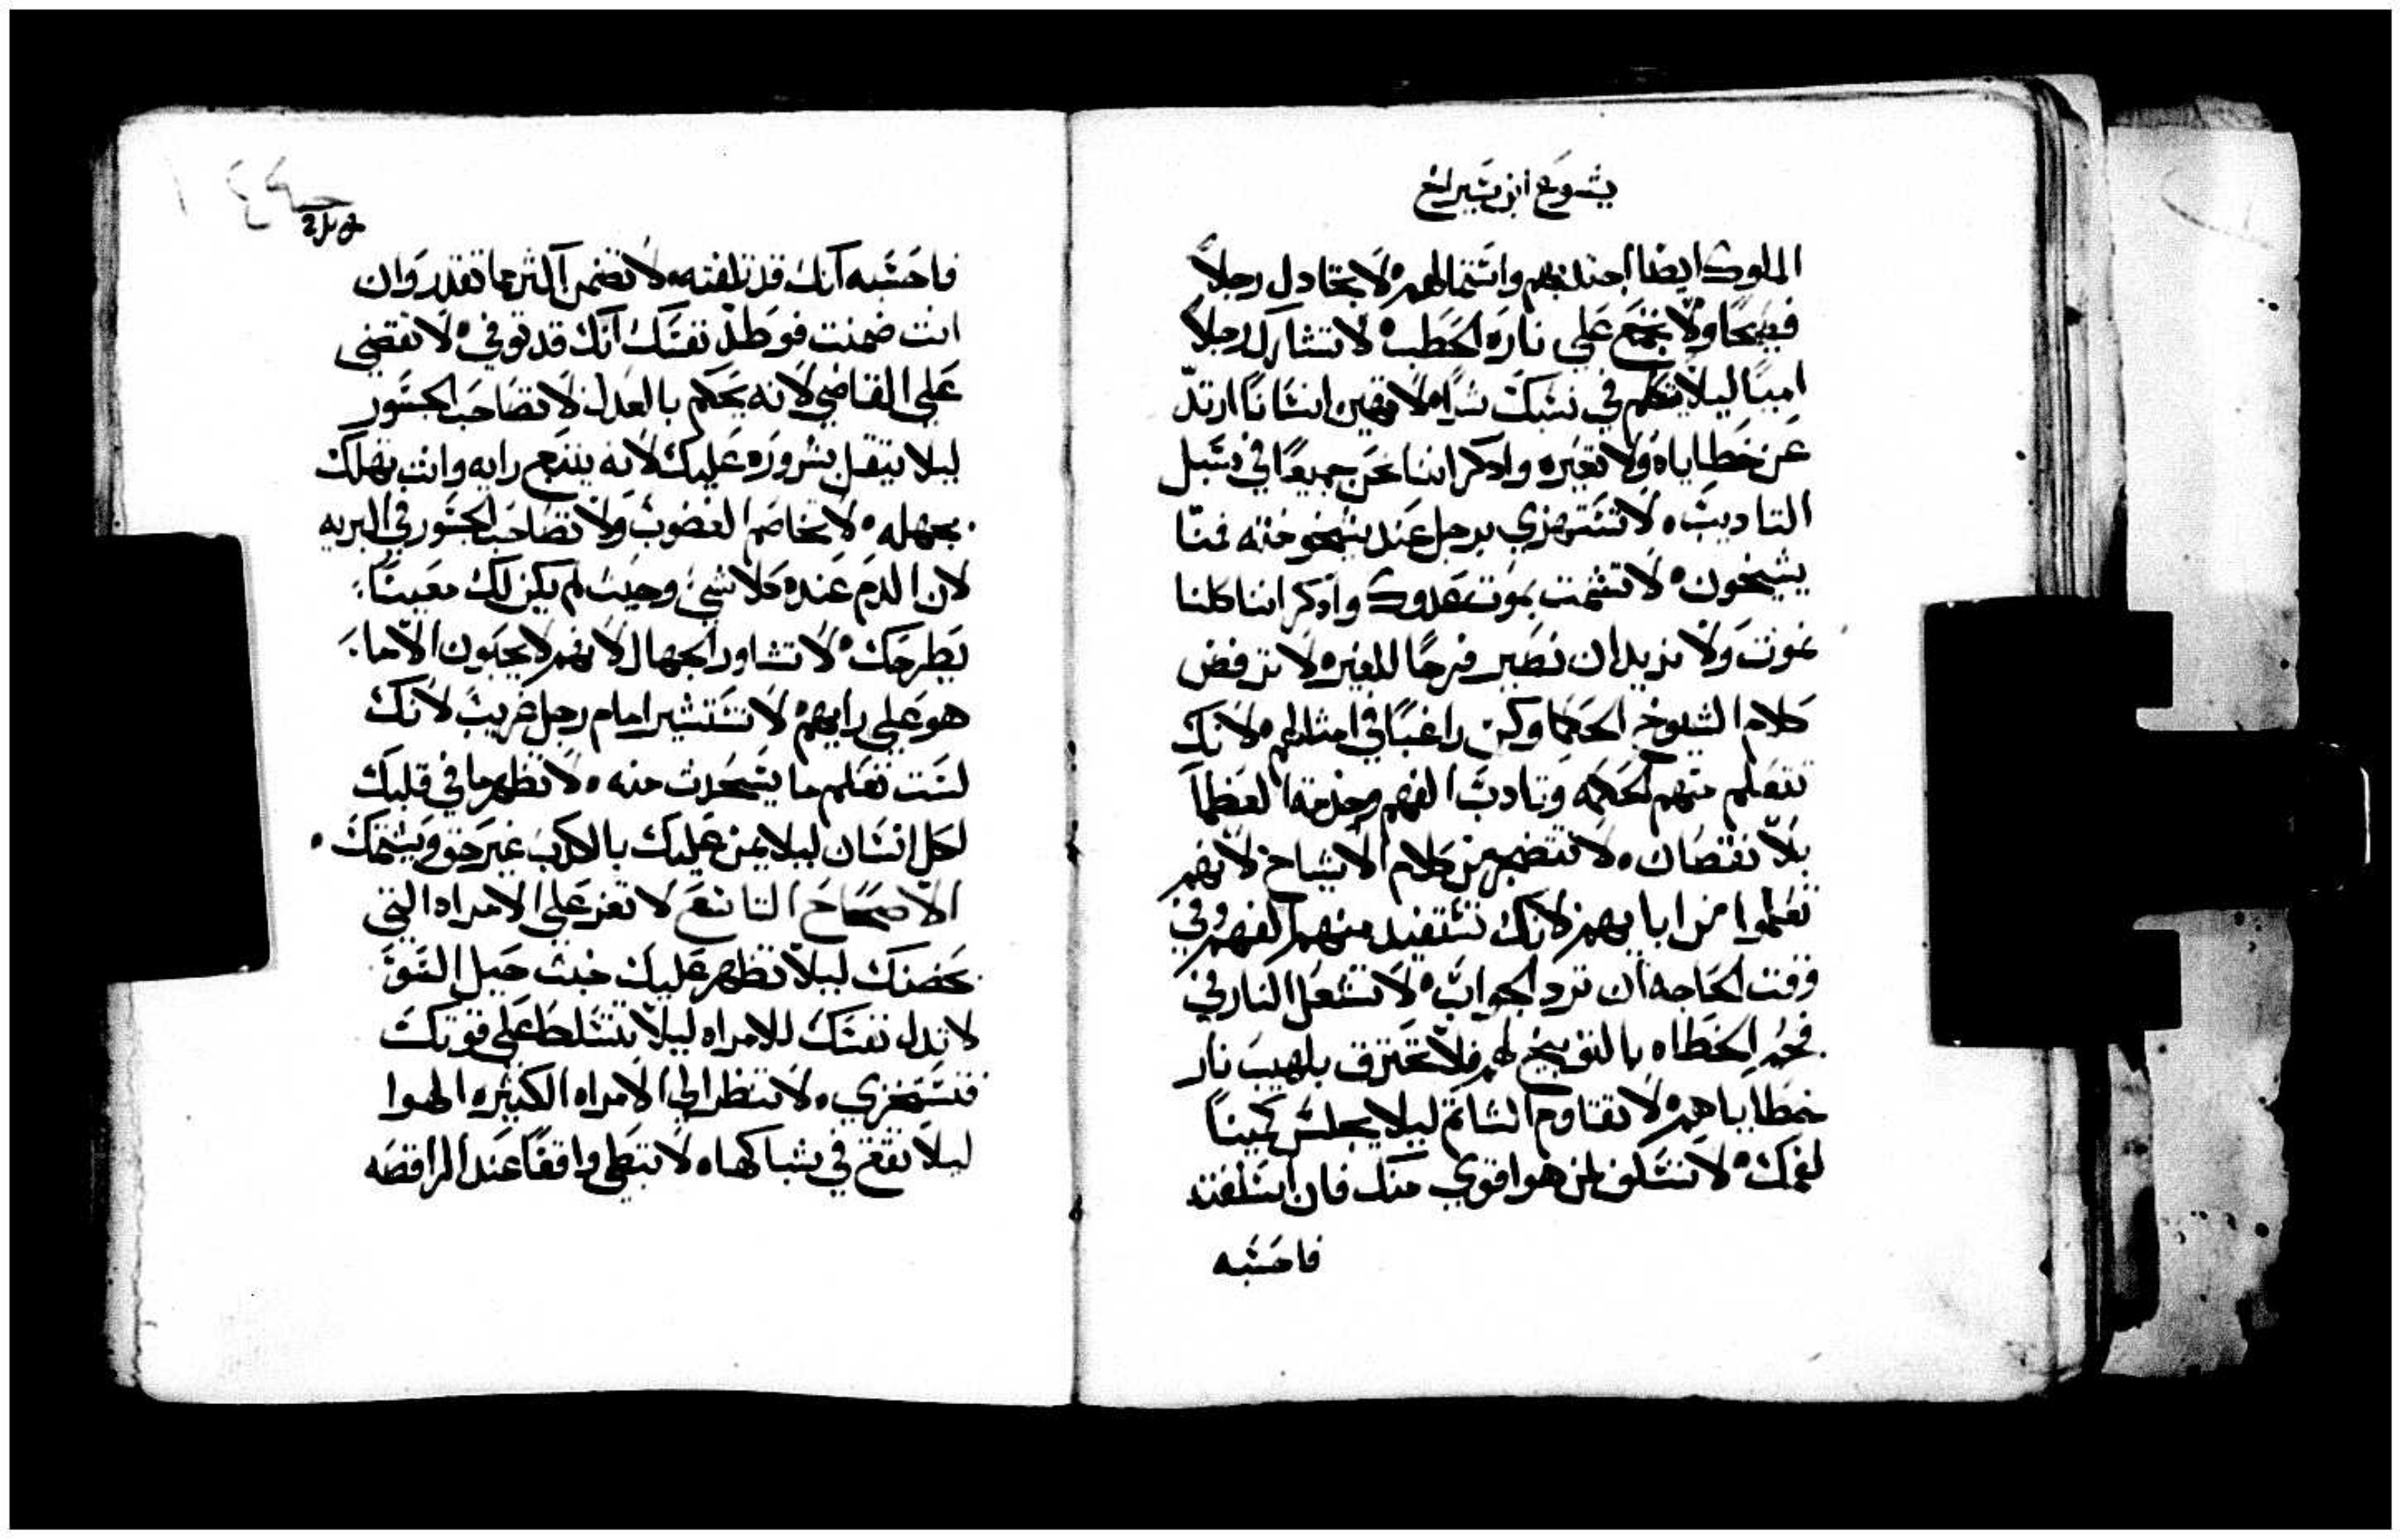 يشوع ابن سيراخ
الملوك ايضا اجتذبهم واستمالهم لا تجادل رجلاً
فصيحًا ولا تجمع علي ناره الحطب لا تشارك رجلاً
اميًا ليلا يتكلم في نسبك شرًا لا تهين انسانًا ارتدّ
عن خطاياه ولا تعيره واذكر اننا نحن جميعًا في سبل
التاديب لا تستهزي برجل عند شيخوخته فمنا
يشيخون لا تشمت بموت عدوك واذكر اننا كلنا
نموت ولا نريد ان نصير فرحًا للغير لا ترفض
كلام الشيوخ الحكما وكن راغبًا في امثالهم لانك
تتعلم منهم الحكمه وتادب الفهم وخدمة العظما
بلا نقصان لا تتضجر من كلام الاشياخ لانهم
تعلموا من ابايهم لانك تستفيد منهم الفهم وفي
وقت الحاجه ان ترد الجواب لا تشعل النار في
فحم الخطاه بالتوبيخ لهم فلا تحترق بلهيب نار
خطاياهم لا تقاوم الشاتم ليلا يجلس كمينًا
لفمك لا تتسلف لمن هو اقوي منك فان استلفته
فاحسبه
فاحسبه انك قد تلفته لا تضمن اكثر مما تقدر وان
انت ضمنت فوطد نفسك انك قد توفي لا تقضي
علي القاضي لانه يحكم بالعدل لا تصاحب الجسور
ليلا يتقل بشروره عليك لانه يتبع رايه وانت تهلك
بجهله لا تخاصم الغضوب ولا تصاحب الجسور في البريه
لان الدم عنده كلا شي وحيث لم يكن لك معينًا
يطرحك لا تشاور الجهال لانهم لا يحبون الا ما
هو علي رايهم لا تستشير امام رجل غريب لانك
لست تعلم ما يتحدث منه لا تظهر ما في قلبك
لكل انسان ليلا يمن عليك بالكدب غير حق ويشتمك
الاصحاح التاسع لا تغر علي الامراه التي
بحضنك ليلا تظهر عليك خبث حيل السو
لا تدل نفسك للامراه ليلا تتسلط علي قوتك
فتستخزي لا تنظر الي الامراه الكثيره الهوا
ليلا تقع في شباكها لا تبطي واقفًا عند الراقصه